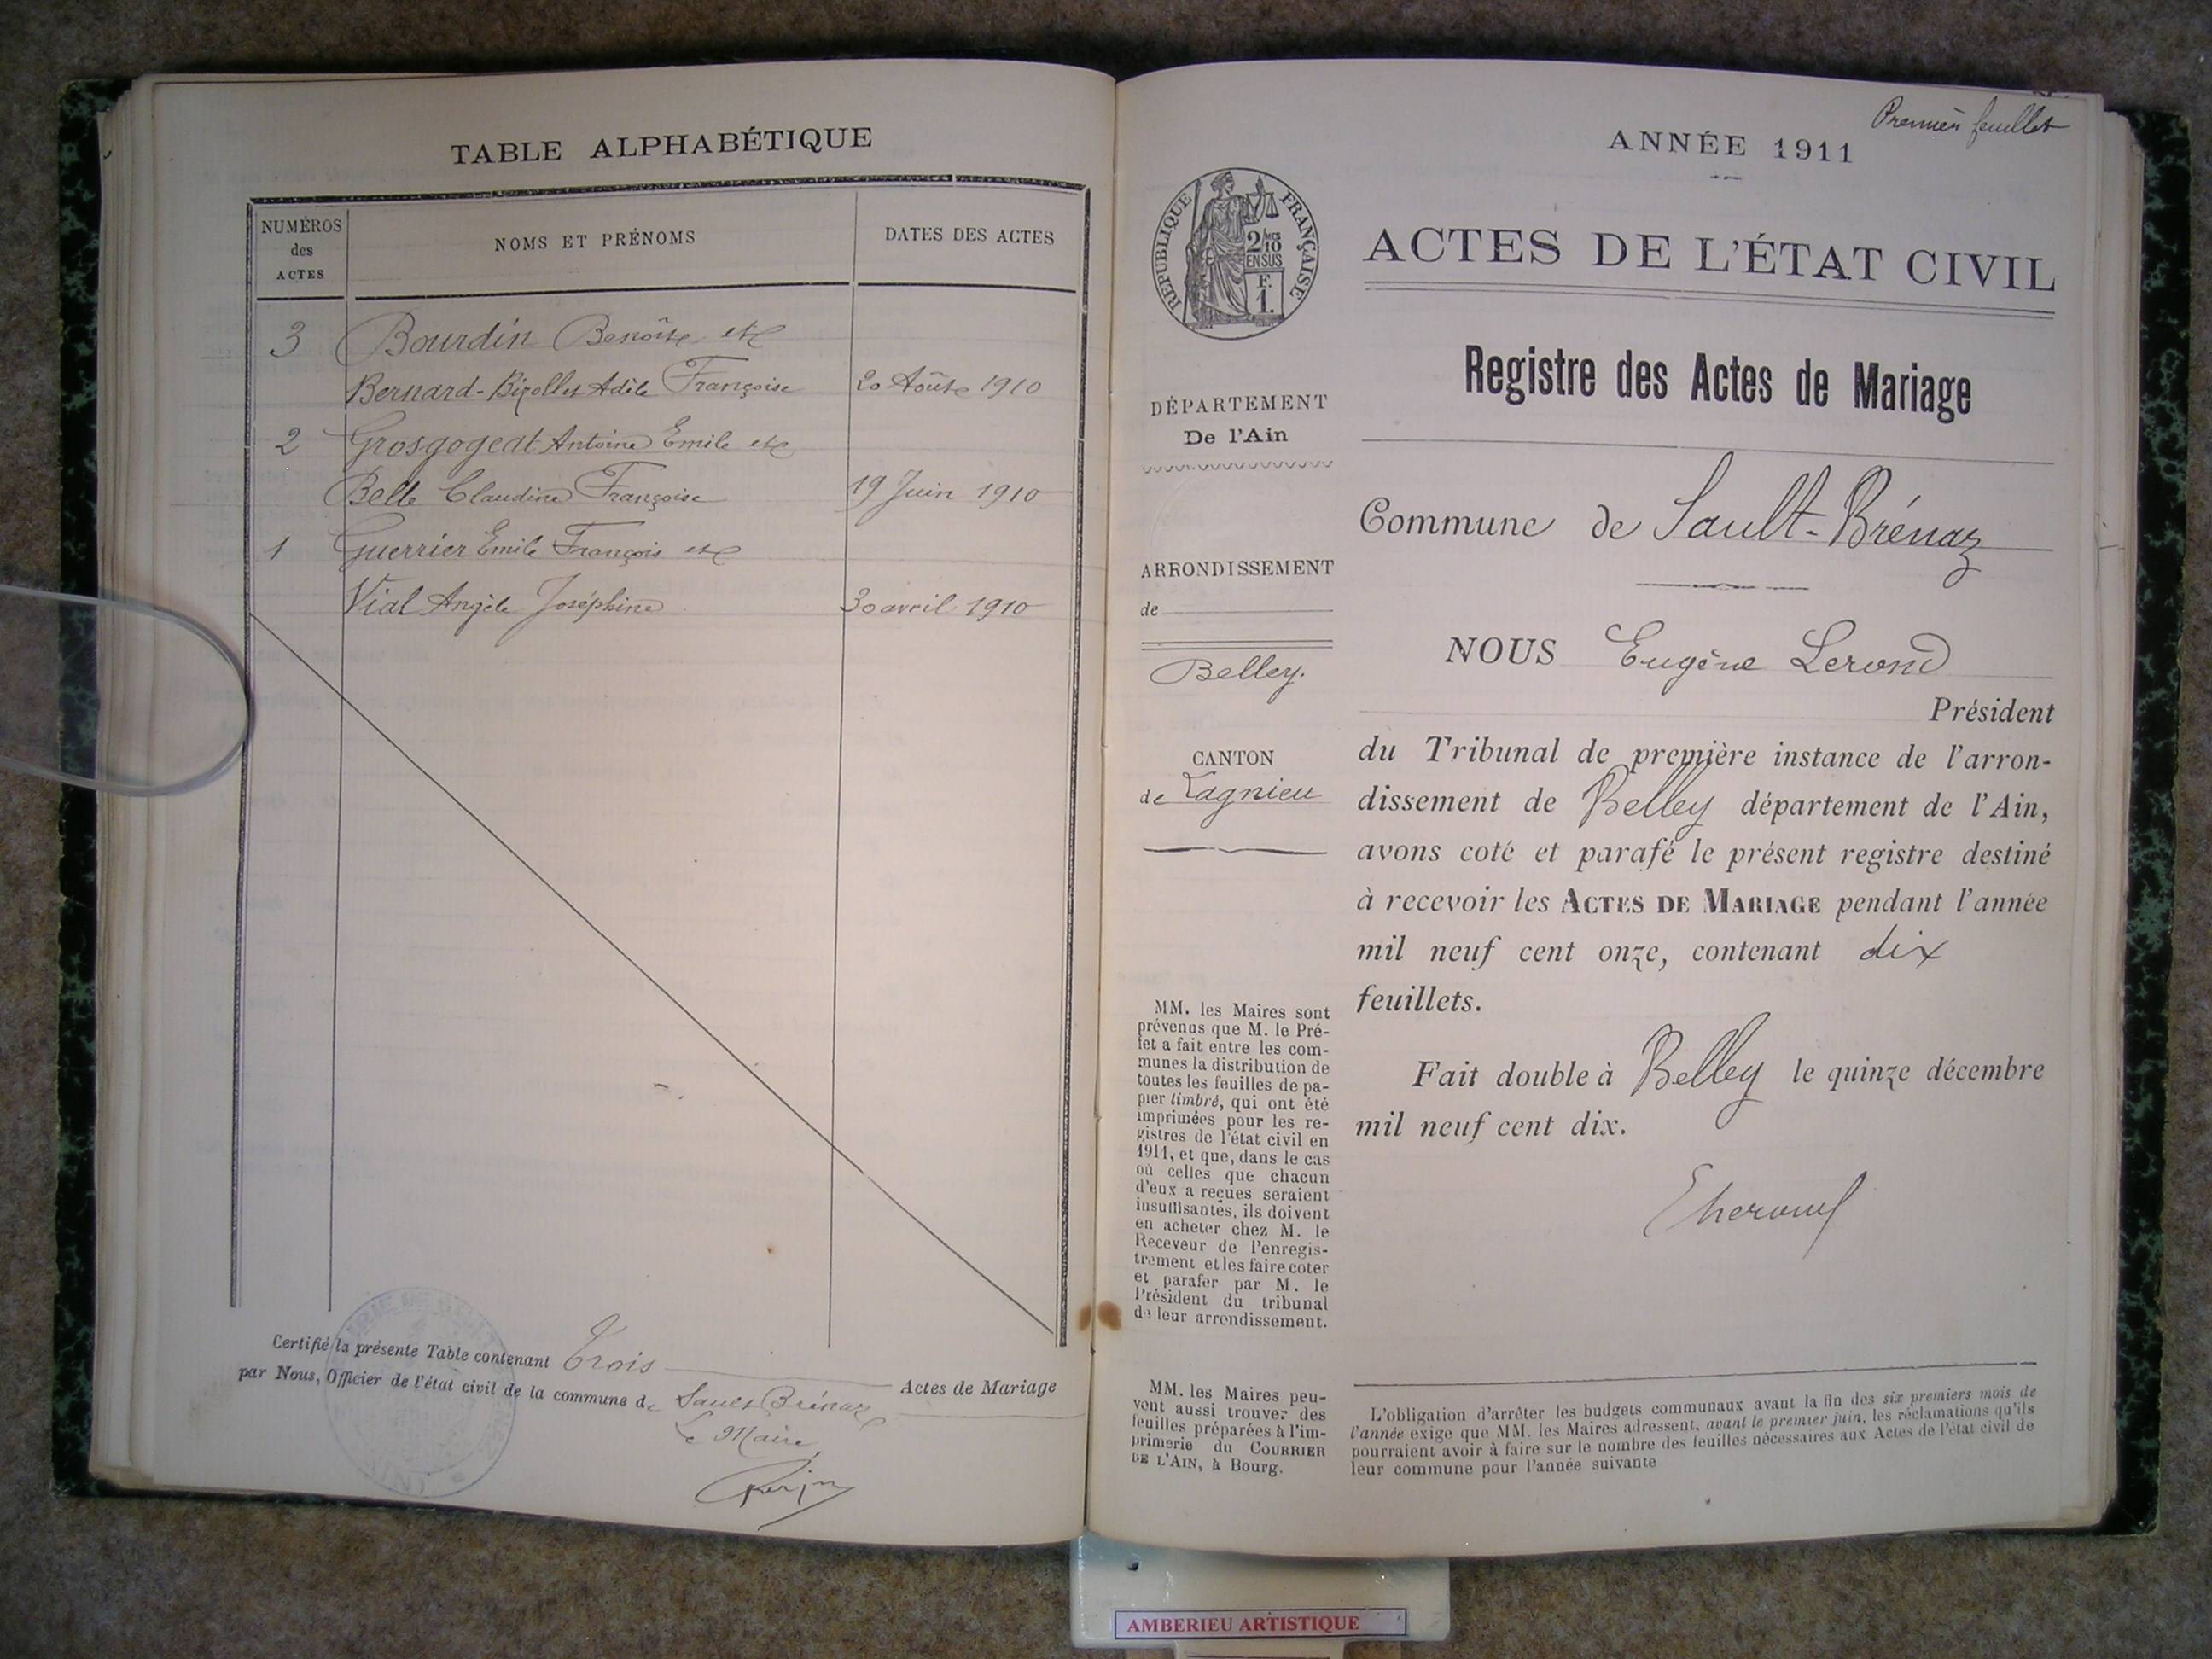 TABLE ALPHABÉTIQUE
NUMÉROS
des
ACTES
NOMS ET PRÉNOMS
DATES DES ACTES
3 Bourdin Benoît et
Bernard-Bizollet Adèle Françoise 20 Août 1910
2 Grosgogeat Antoine Emile et
Belle Claudine Françoise 19 Juin 1910
1 Guerrier Emile François et
Vial Angèle Joséphine 30 avril 1910
Certifié la présente Table contenant Trois Actes de Mariage
par Nous, Officier de l'état civil de la commune de Sault Brénaz
Le Maire
Premier feuillet
ANNÉE 1911
RÉPUBLIQUE FRANÇAISE
2/10
EN SUS
F.
1.
ACTES DE L'ÉTAT CIVIL
Registre des Actes de Mariage
DÉPARTEMENT
De l'Ain
ARRONDISSEMENT
de
Belley.
CANTON
de Lagnieu
MM. les Maires sont
prévenus que M. le Pré-
fet a fait entre les com-
munes la distribution de
toutes les feuilles de pa-
pier timbré, qui ont été
imprimées pour les re-
gistres de l'état civil en
1911, et que, dans le cas
où celles que chacun
d'eux a reçues seraient
insuffisantes, ils doivent
en acheter chez M. le
Receveur de l'enregis-
trement et les faire coter
et parafer par M. le
Président du tribunal
de leur arrondissement.
MM. les Maires peu-
vent aussi trouver des
feuilles préparées à l'im-
primerie du COURRIER
DE L'AIN, à Bourg.
Commune de Sault-Brénaz
NOUS Eugène Lerond
Président
du Tribunal de première instance de l'arron-
dissement de Belley département de l'Ain,
avons coté et parafé le présent registre destiné
à recevoir les ACTES DE MARIAGE pendant l'année
mil neuf cent onze, contenant dix
feuillets.
Fait double à Belley le quinze décembre
mil neuf cent dix.
L'obligation d'arrêter les budgets communaux avant la fin des six premiers mois de
l'année exige que MM. les Maires adressent, avant le premier juin, les réclamations qu'ils
pourraient avoir à faire sur le nombre des feuilles nécessaires aux Actes de l'état civil de
leur commune pour l'année suivante
AMBERIEU ARTISTIQUE